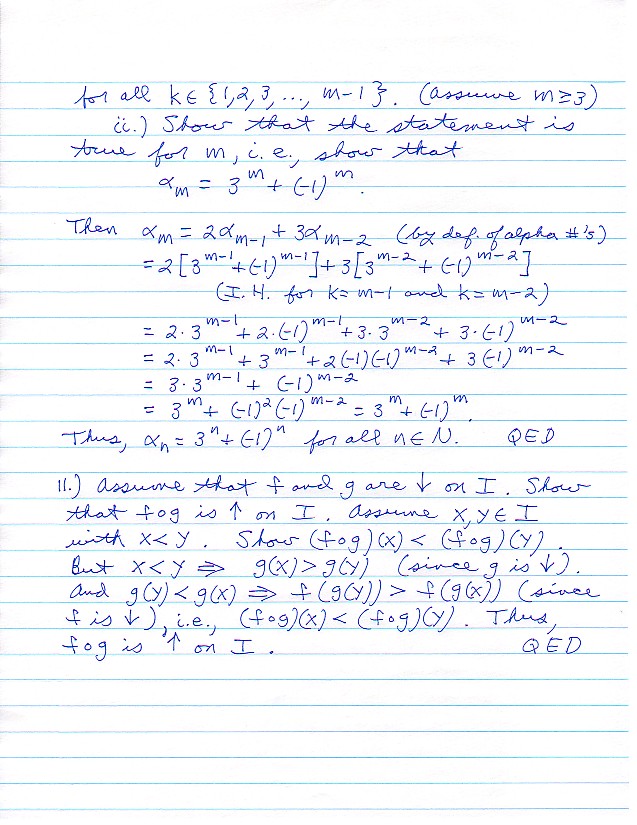 for all k ∈ {1,2,3, ..., m-1}. (assume m≥3)
ii.) Show that the statement is
true for m, i.e., show that
α_m = 3^m + (-1)^m.
Then α_m = 2α_{m-1} + 3α_{m-2} (by def. of alpha #'s)
= 2[3^{m-1} + (-1)^{m-1}] + 3[3^{m-2} + (-1)^{m-2}]
(I.H. for k = m-1 and k = m-2)
= 2·3^{m-1} + 2·(-1)^{m-1} + 3·3^{m-2} + 3·(-1)^{m-2}
= 2·3^{m-1} + 3^{m-1} + 2(-1)(-1)^{m-2} + 3(-1)^{m-2}
= 3·3^{m-1} + (-1)^{m-2}
= 3^m + (-1)^2(-1)^{m-2} = 3^m + (-1)^m.
Thus, α_n = 3^n + (-1)^n for all n ∈ N. QED
11.) Assume that f and g are ↓ on I. Show
that fog is ↑ on I. Assume x, y ∈ I
with x < y. Show (fog)(x) < (fog)(y).
But x < y ⇒ g(x) > g(y) (since g is ↓).
And g(y) < g(x) ⇒ f(g(y)) > f(g(x)) (since
f is ↓), i.e., (fog)(x) < (fog)(y). Thus,
fog is ↑ on I. QED